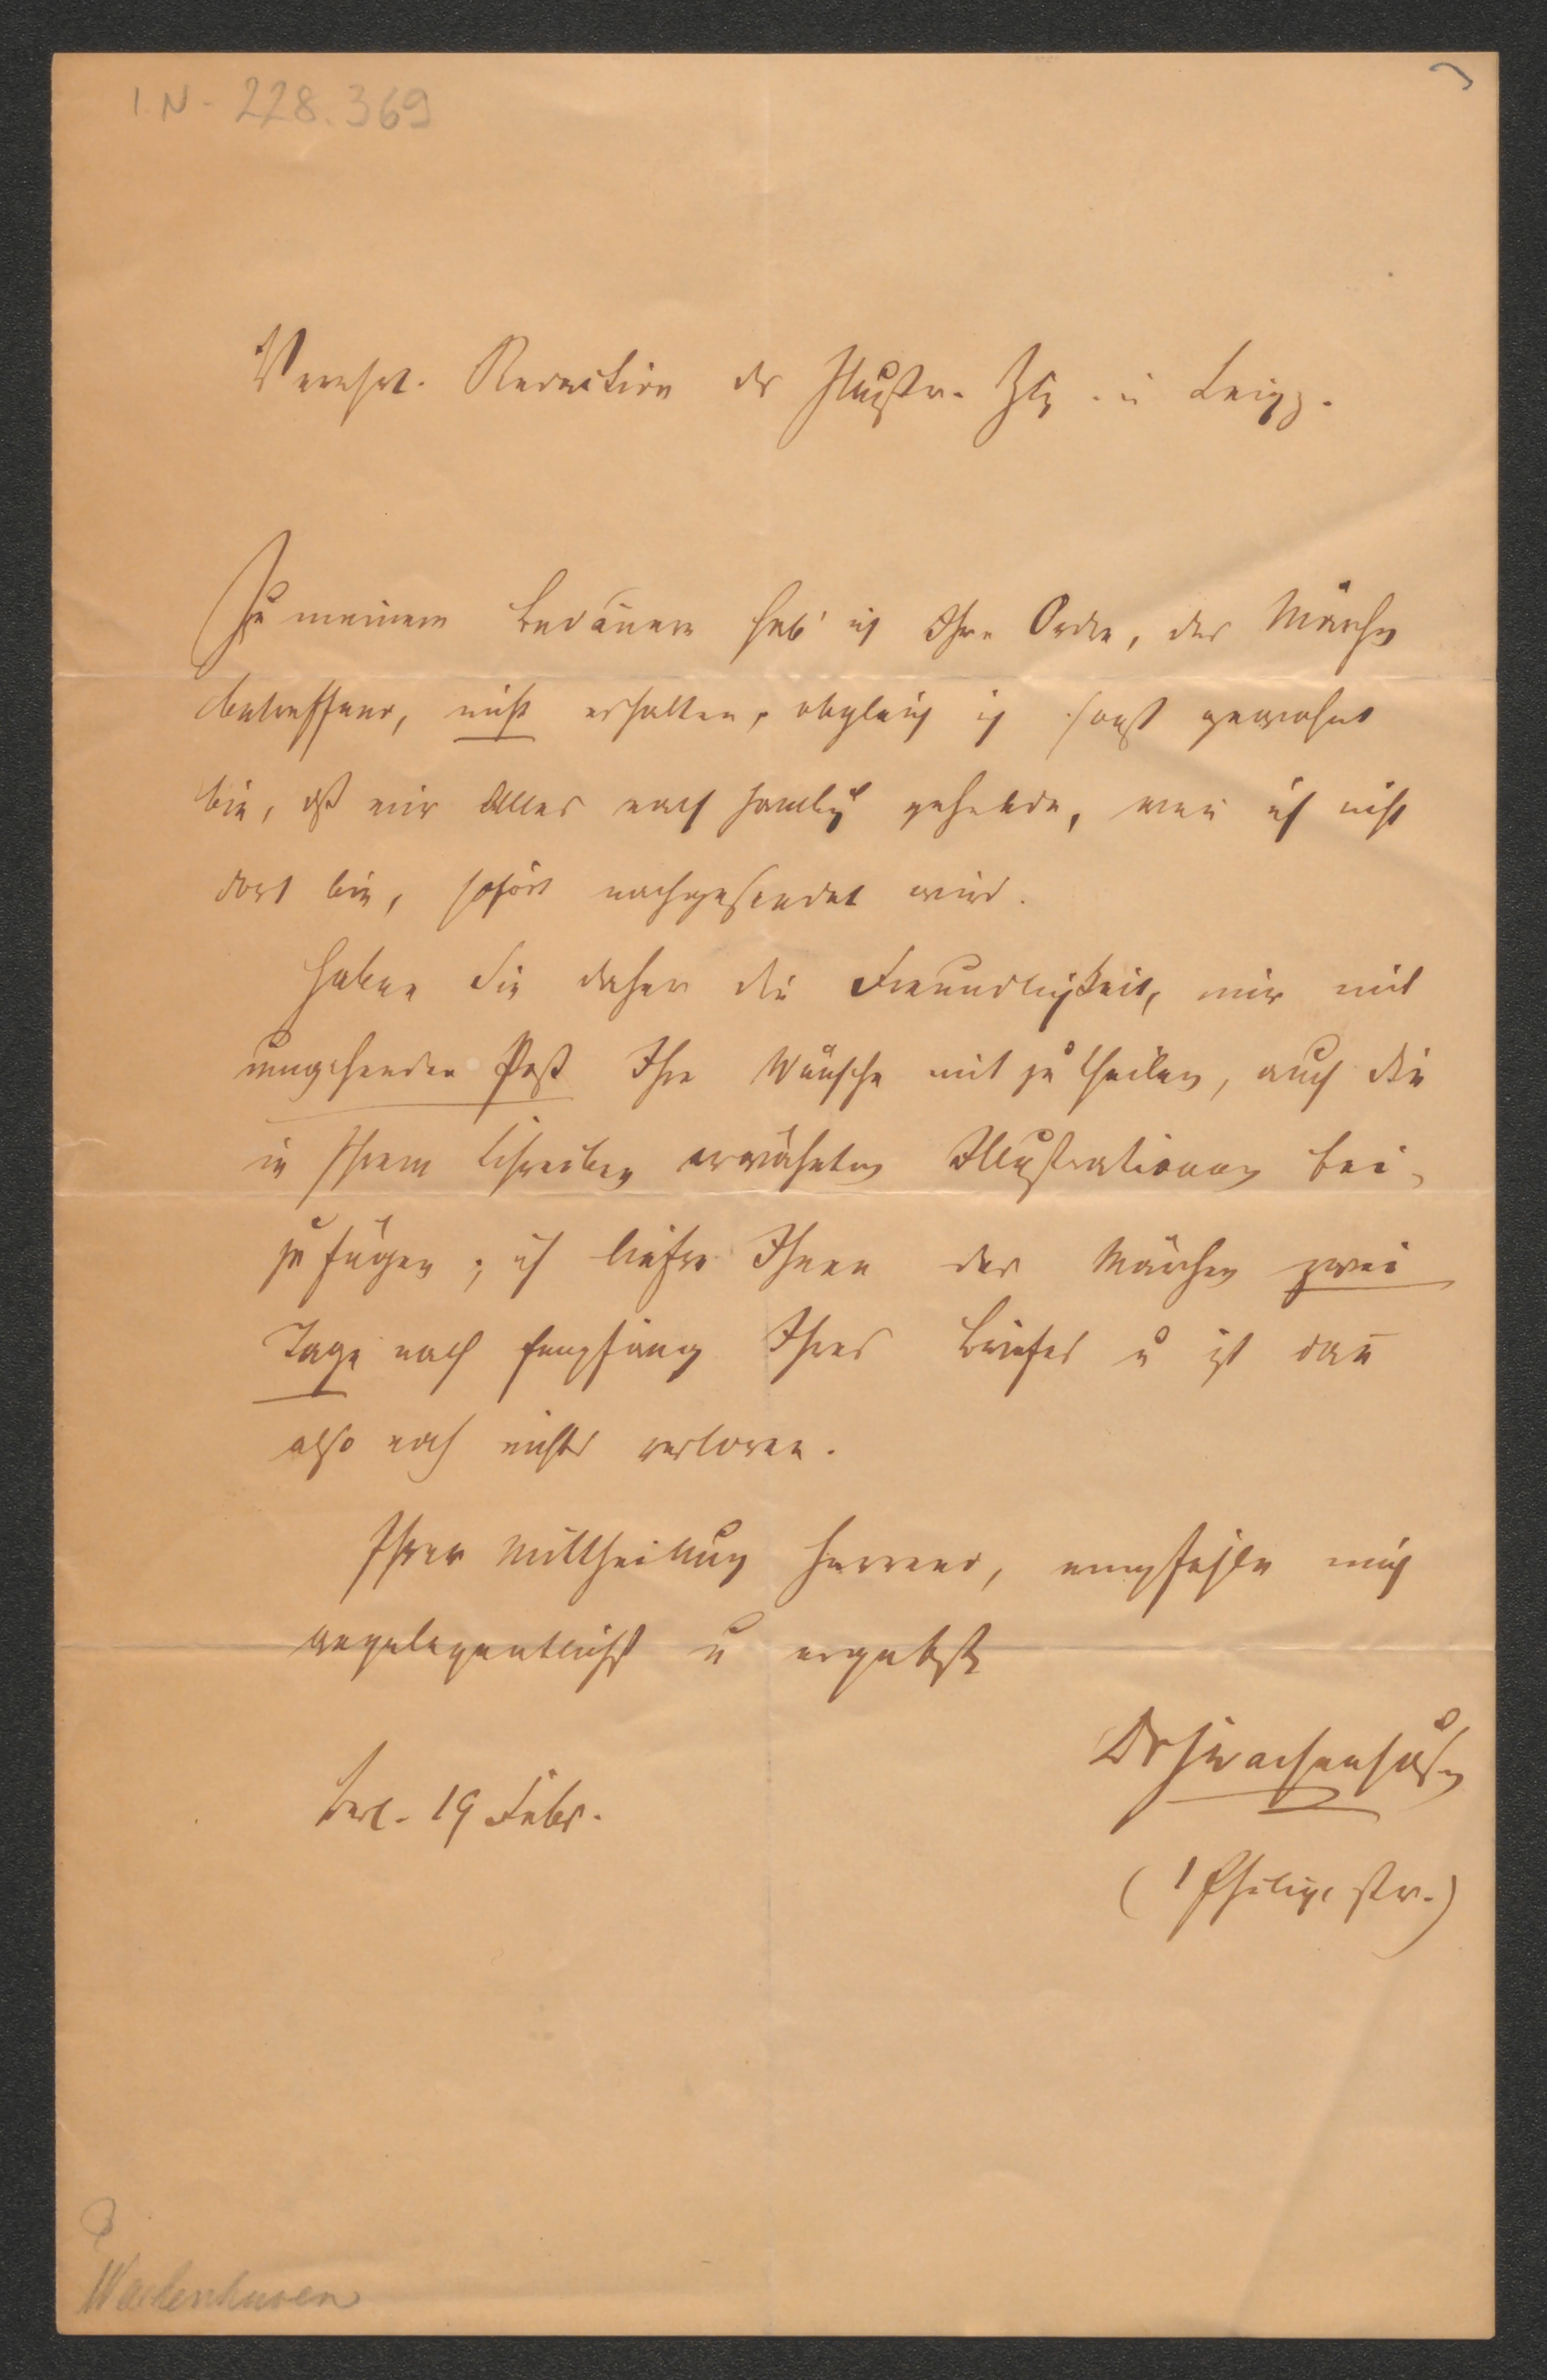 I.N- 228.369
Verehrl. Redaction der Illustr. Ztg. in Leipz.
Zu meinem Bedauern hab' ich Ihre Ordre, das Märchen
betreffend, nicht erhalten, obgleich ich sonst gewohnt
bin, daß mir Alles nach Hambg gesendete, wenn ich nicht
dort bin, sofort nachgesendet wird.
Haben Sie daher die Freundlichkeit, mir mit
umgehender Post Ihre Wünsche mit zu theilen, auch die
in Ihrem Schreiben erwähnten Illustrationen bei-
zufügen; ich liefre Ihnen das Märchen zwei
Tage nach Empfang Ihres Briefes u ist dann
also noch nichts verloren.
Ihrer Mittheilung harrend, empfehle mich
angelegentlichst u ergebenst
Dr HWachenhusen
Berl. 19 Febr.
(1 Philipp str.)
Wachenhusen